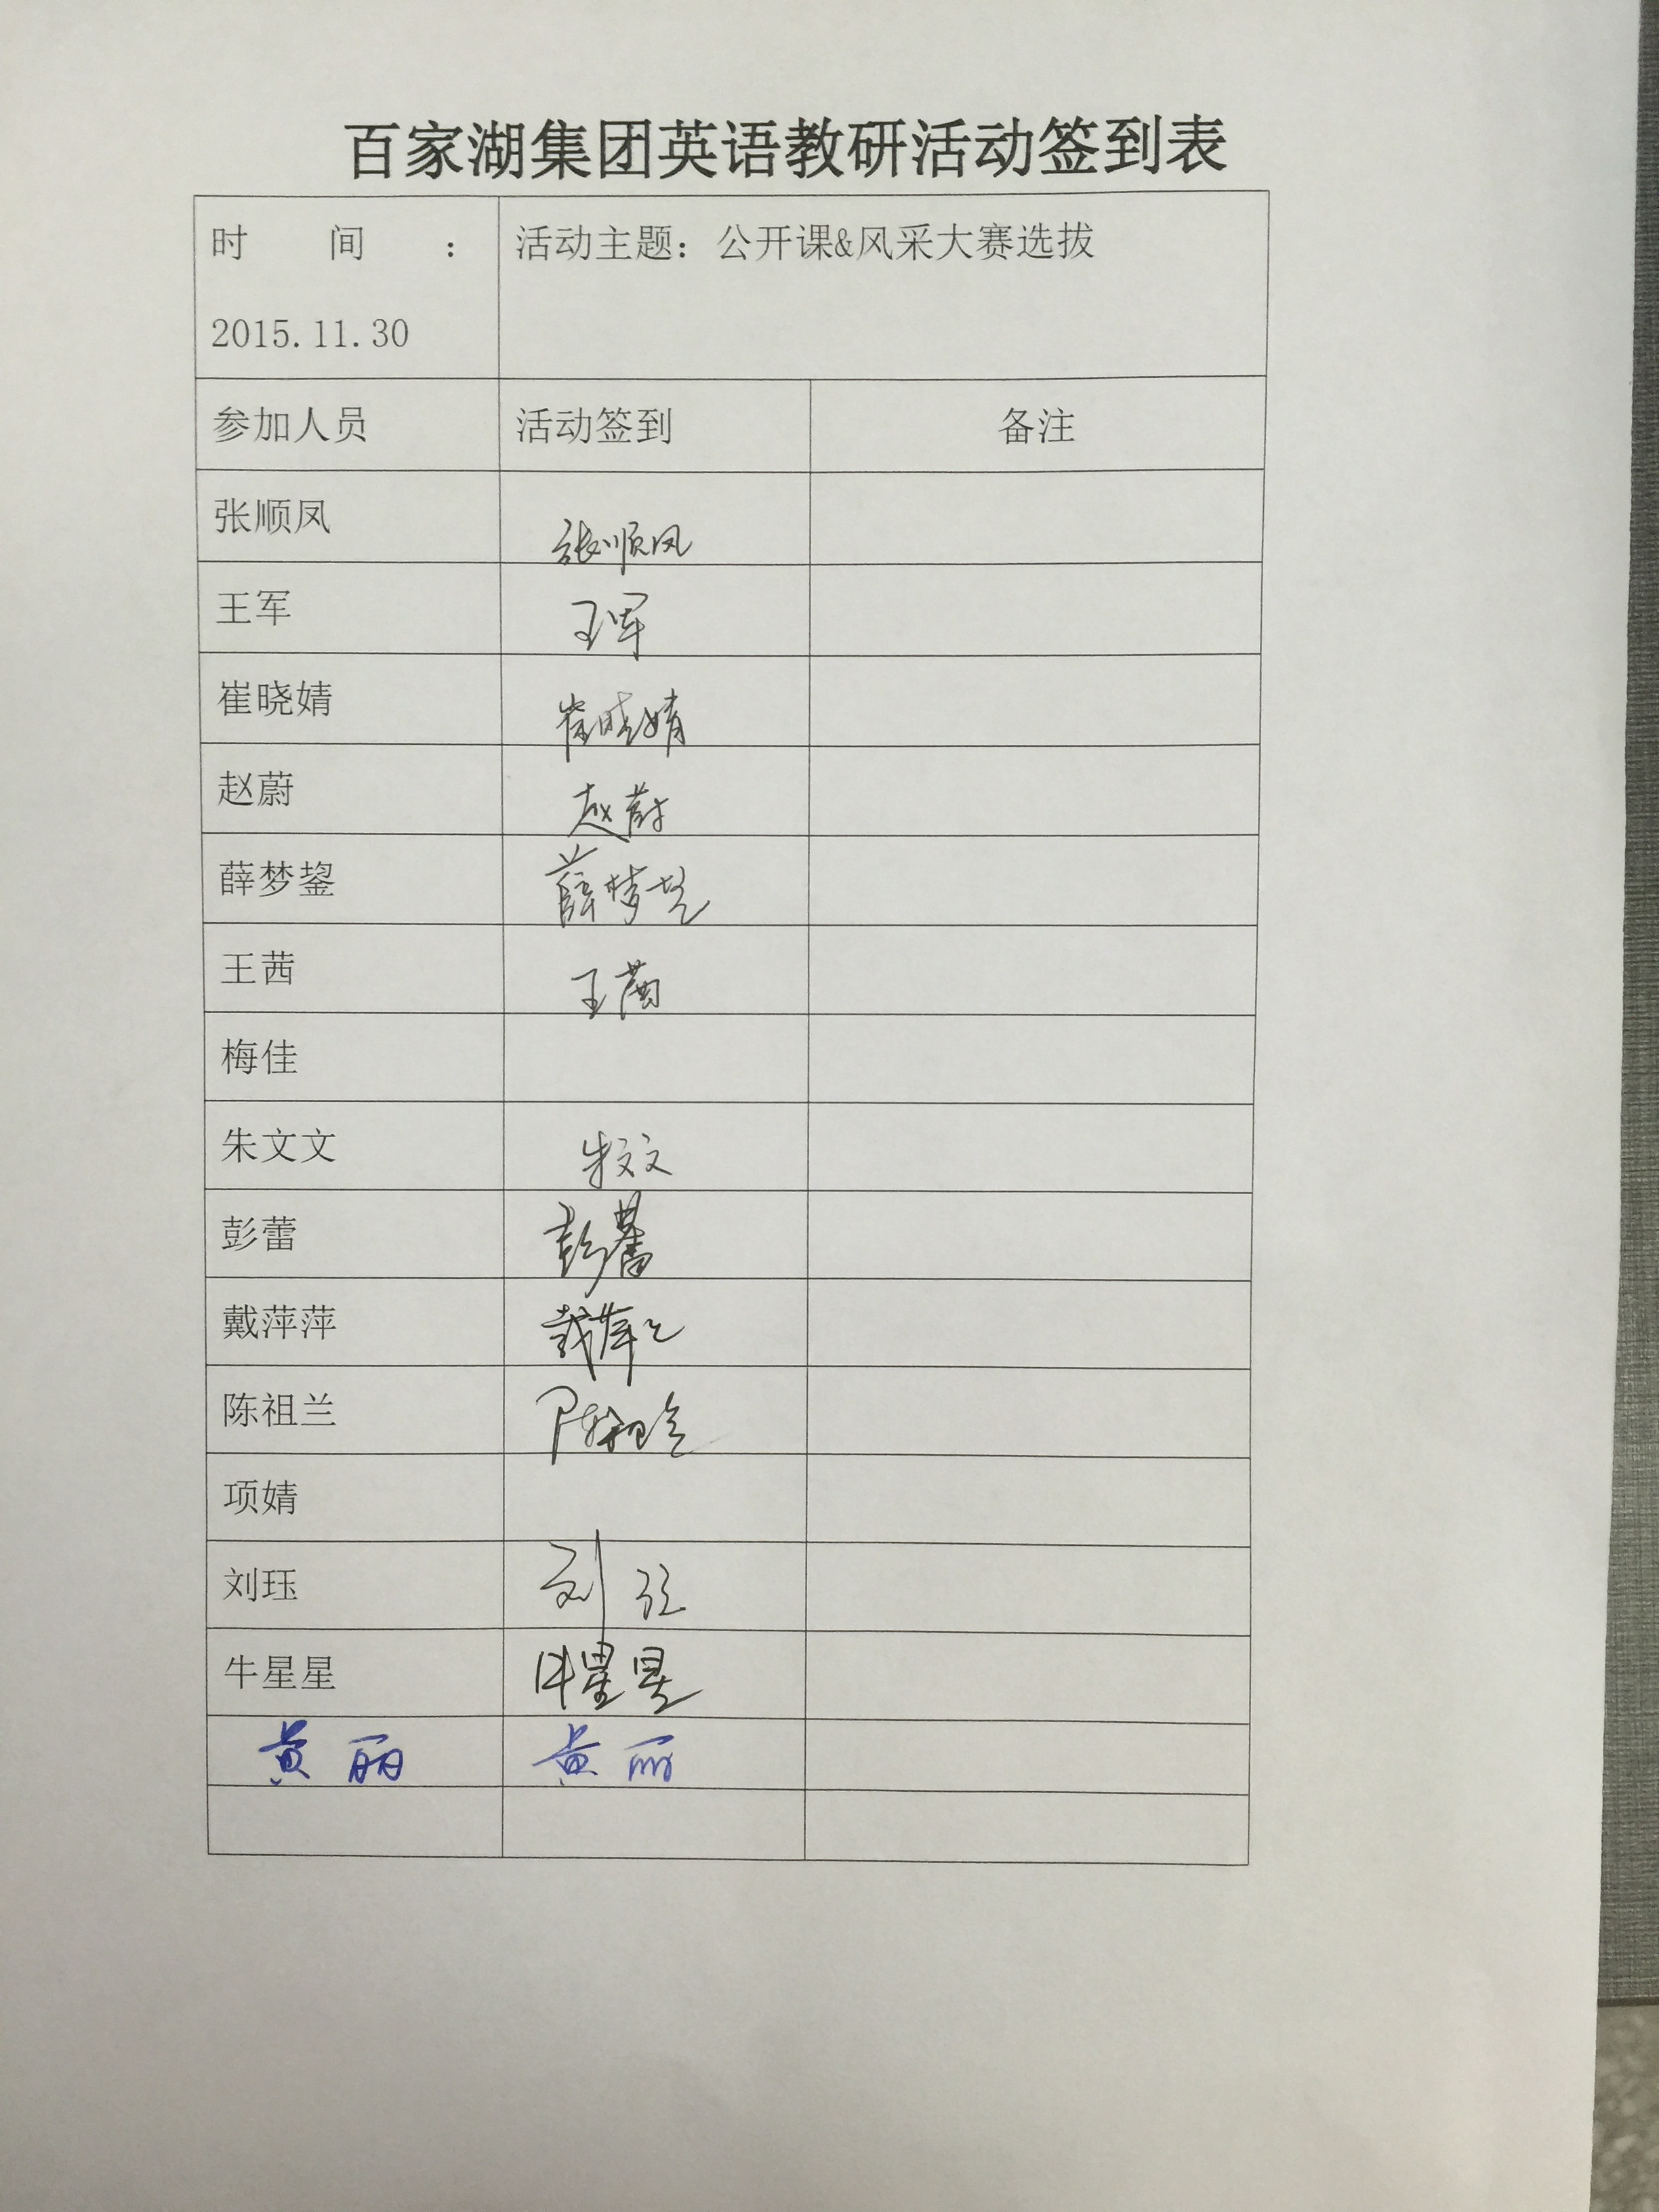 百家湖集团英语教研活动签到表
时 间 : 活动主题：公开课&风采大赛选拔
2015.11.30
参加人员 活动签到 备注
张顺凤 张顺凤
王军 王军
崔晓婧 崔晓婧
赵蔚 赵蔚
薛梦鋆 薛梦鋆
王茜 王茜
梅佳
朱文文 朱文文
彭蕾 彭蕾
戴萍萍 戴萍萍
陈祖兰 陈祖兰
项婧
刘珏 刘珏
牛星星 牛星星
黄丽 黄丽